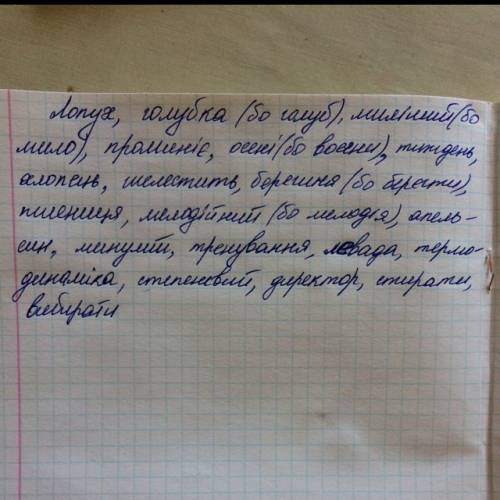 Лопух, голубка (бо голуб), милішій (бо
мило), проміниє, осені (бо восени), тиждень,
хлопець, шелестить, берегиня (бо берегти),
пшениця, мелодійний (бо мелодія), апель-
син, минулий, тренування, левада, термо-
динаміка, степеневий, директор, стирати,
вибирати